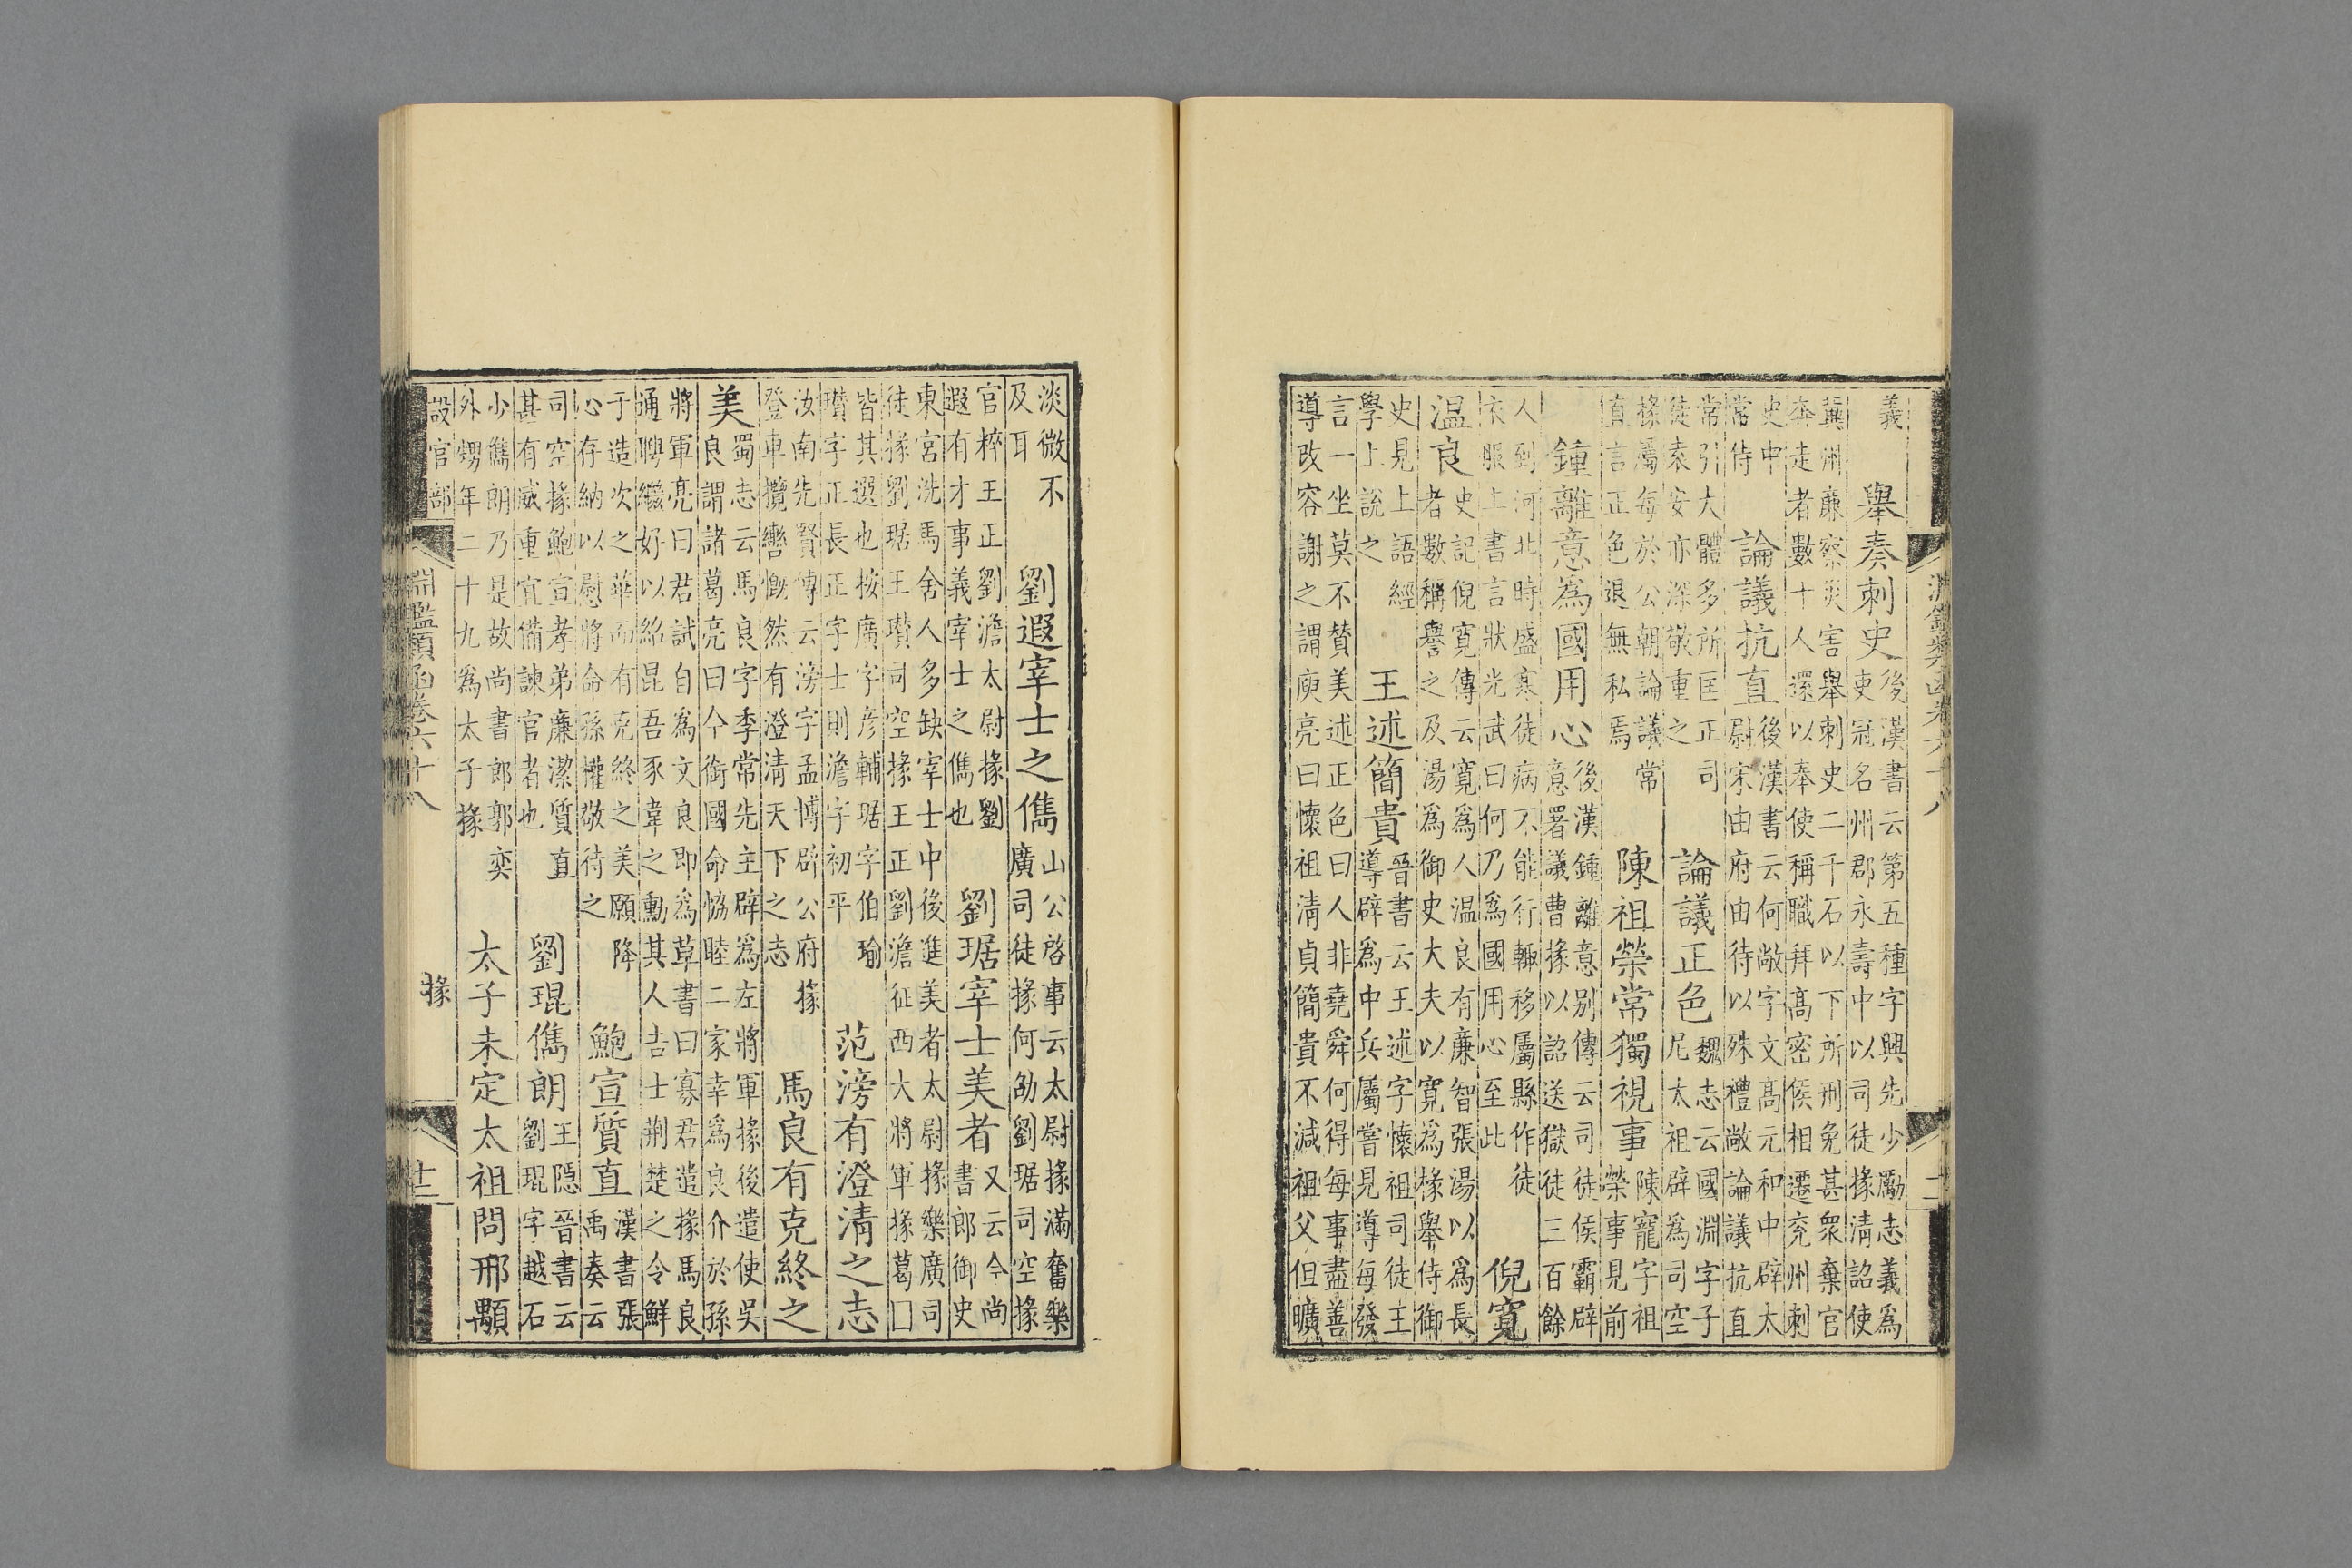 淵鑑類函卷六十八
義
舉奏刺史
後漢書云第五種字興先少勵志義為
吏冠名州郡永壽中以司徒掾清詔使
冀州廉察災害舉刺史二千石以下所刑免甚衆棄官
奔走者數十人還以奉使稱職拜高密侯相遷兖州刺
史中
常侍
論議抗直
後漢書云何敞字文高元和中辟太
尉宋由府由待以殊禮敞論議抗直
常引大體多所匡正司
徒袁安亦深敬重之
論議正色
魏志云國淵字子
尼太祖辟為司空
掾屬每於公朝論議常
直言正色退無私焉
陳祖榮常獨視事
陳寵字祖
榮事見前
鍾離意為國用心
後漢鍾離意别傳云司徒侯霸辟
意署議曹掾以詔送獄徒三百餘
人到河北時盛寒徒病不能行輙移屬縣作徒
衣服上書言狀光武曰何乃為國用心至此
倪寬
温良
史記倪寬傳云寬為人温良有廉智張湯以為長
者數稱譽之及湯為御史大夫以寬為掾舉侍御
史見上上語經
學上說之
王述簡貴
晉書云王述字懷祖司徒王
導辟為中兵屬嘗見導每發
言一坐莫不賛美述正色曰人非堯舜何得每事盡善
導改容謝之謂庾亮曰懷祖清貞簡貴不減祖父但曠
淡微不
及耳
劉遐宰士之儁
山公啓事云太尉掾滿奮樂
廣司徒掾何劭劉琚司空掾
官粹王正劉澹太尉掾劉
遐有才事義宰士之儁也
劉琚宰士美者
又云今尚
書郎御史
東宮洗馬舍人多缺宰士中後進美者太尉掾樂廣司
徒掾劉琚王瓚司空掾王正劉澹征西大將軍掾葛囗
皆其選也按廣字彦輔琚字伯瑜
瓚字正長正字士則澹字初平
范滂有澄清之志
汝南先賢傳云滂字孟博辟公府掾
登車攬轡慨然有澄清天下之志
馬良有克終之
美
蜀志云馬良字季常先主辟為左將軍掾後遣使吳
良謂諸葛亮曰今銜國命恊睦二家幸為良介於孫
將軍亮曰君試自為文良即為草書曰寡君遣掾馬良
通聘繼好以紹昆吾豕韋之勳其人吉士荆楚之令鮮
于造次之華而有克終之美願降
心存納以慰將命孫權敬待之
鮑宣質直
漢書張
禹奏云
司空掾鮑宣孝弟廉潔質直
甚有威重宜備諫官者也
劉琨儁朗
王隱晉書云
劉琨字越石
少儁朗乃是故尚書郎郭奕
外甥年二十九為太子掾
太子未定太祖問邢顒
設官部
掾
淵鑑類函卷六十八
十二